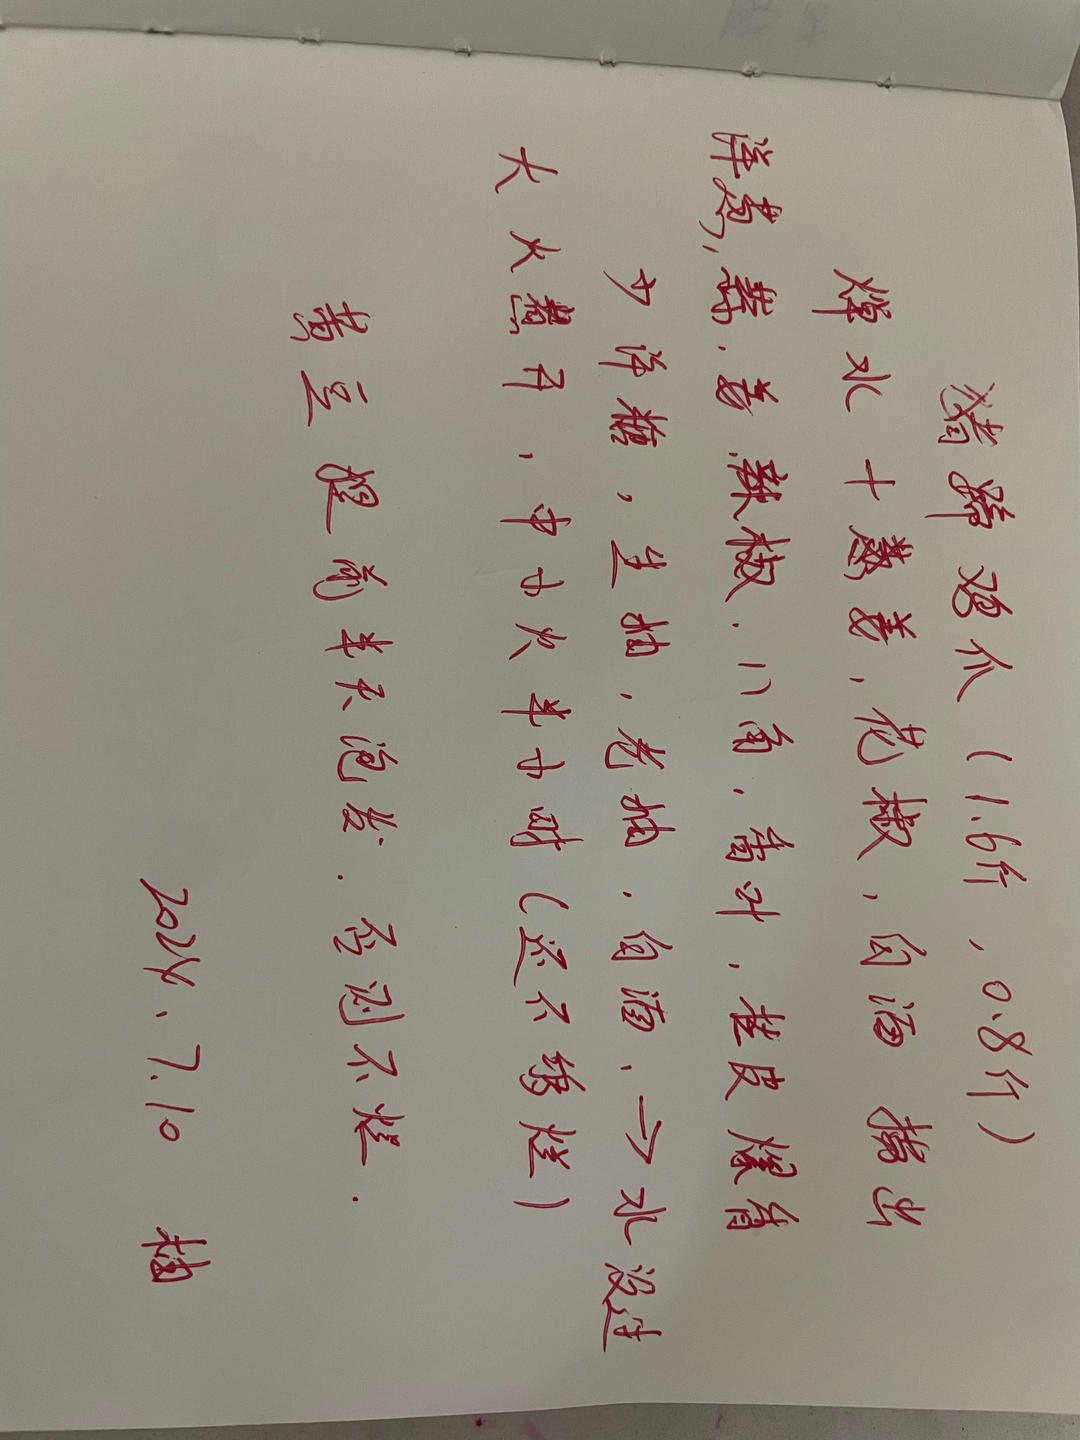 猪蹄鸡爪(1.6斤,0.8斤)
焯水+葱姜,花椒,白酒 捞出
洋葱,蒜、姜、辣椒、八角、香叶,桂皮 爆香
少许糖,生抽,老抽,白酒、→水没过
大火煮开,中小火半小时(还不够烂)
黄豆提前半天泡发.否则不烂.
2024、7.10 楠